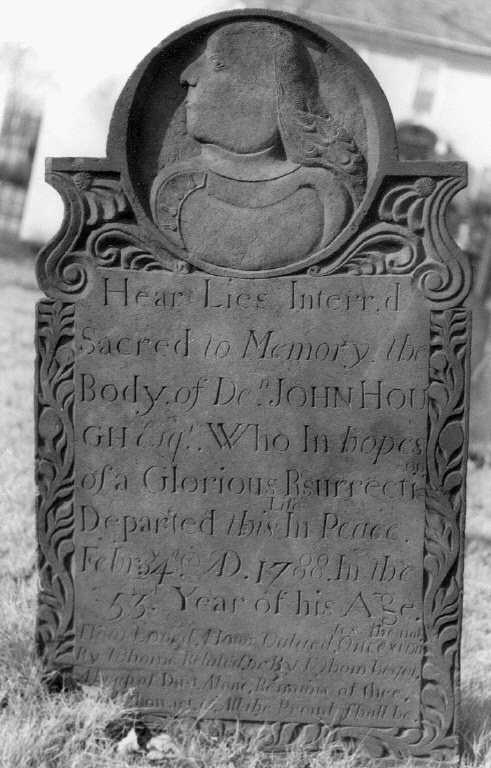 Hear Lies Interr,d
Sacred to Memory, the
Body, of Dcn. JOHN HOU
GH Esqr. Who In hopes
of a Glorious Rsurrecti on
Departed this Life In Peace.
Febr. AD. 1788. In the
53d Year of his Age.
How Loved, How Valued, Once
By Whome Related, or By Whom Begot,
A heap of Dust, Alone, Remains of thee,
All the Proud Shall be